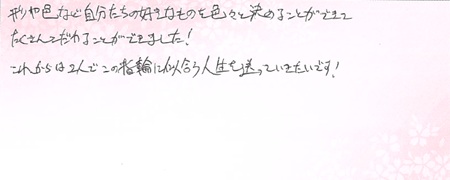 形や色など自分たちの好きなものを色々と決めることができて
たくさんこだわることができました!
これからは2人でこの指輪に似合う人生を送っていきたいです!